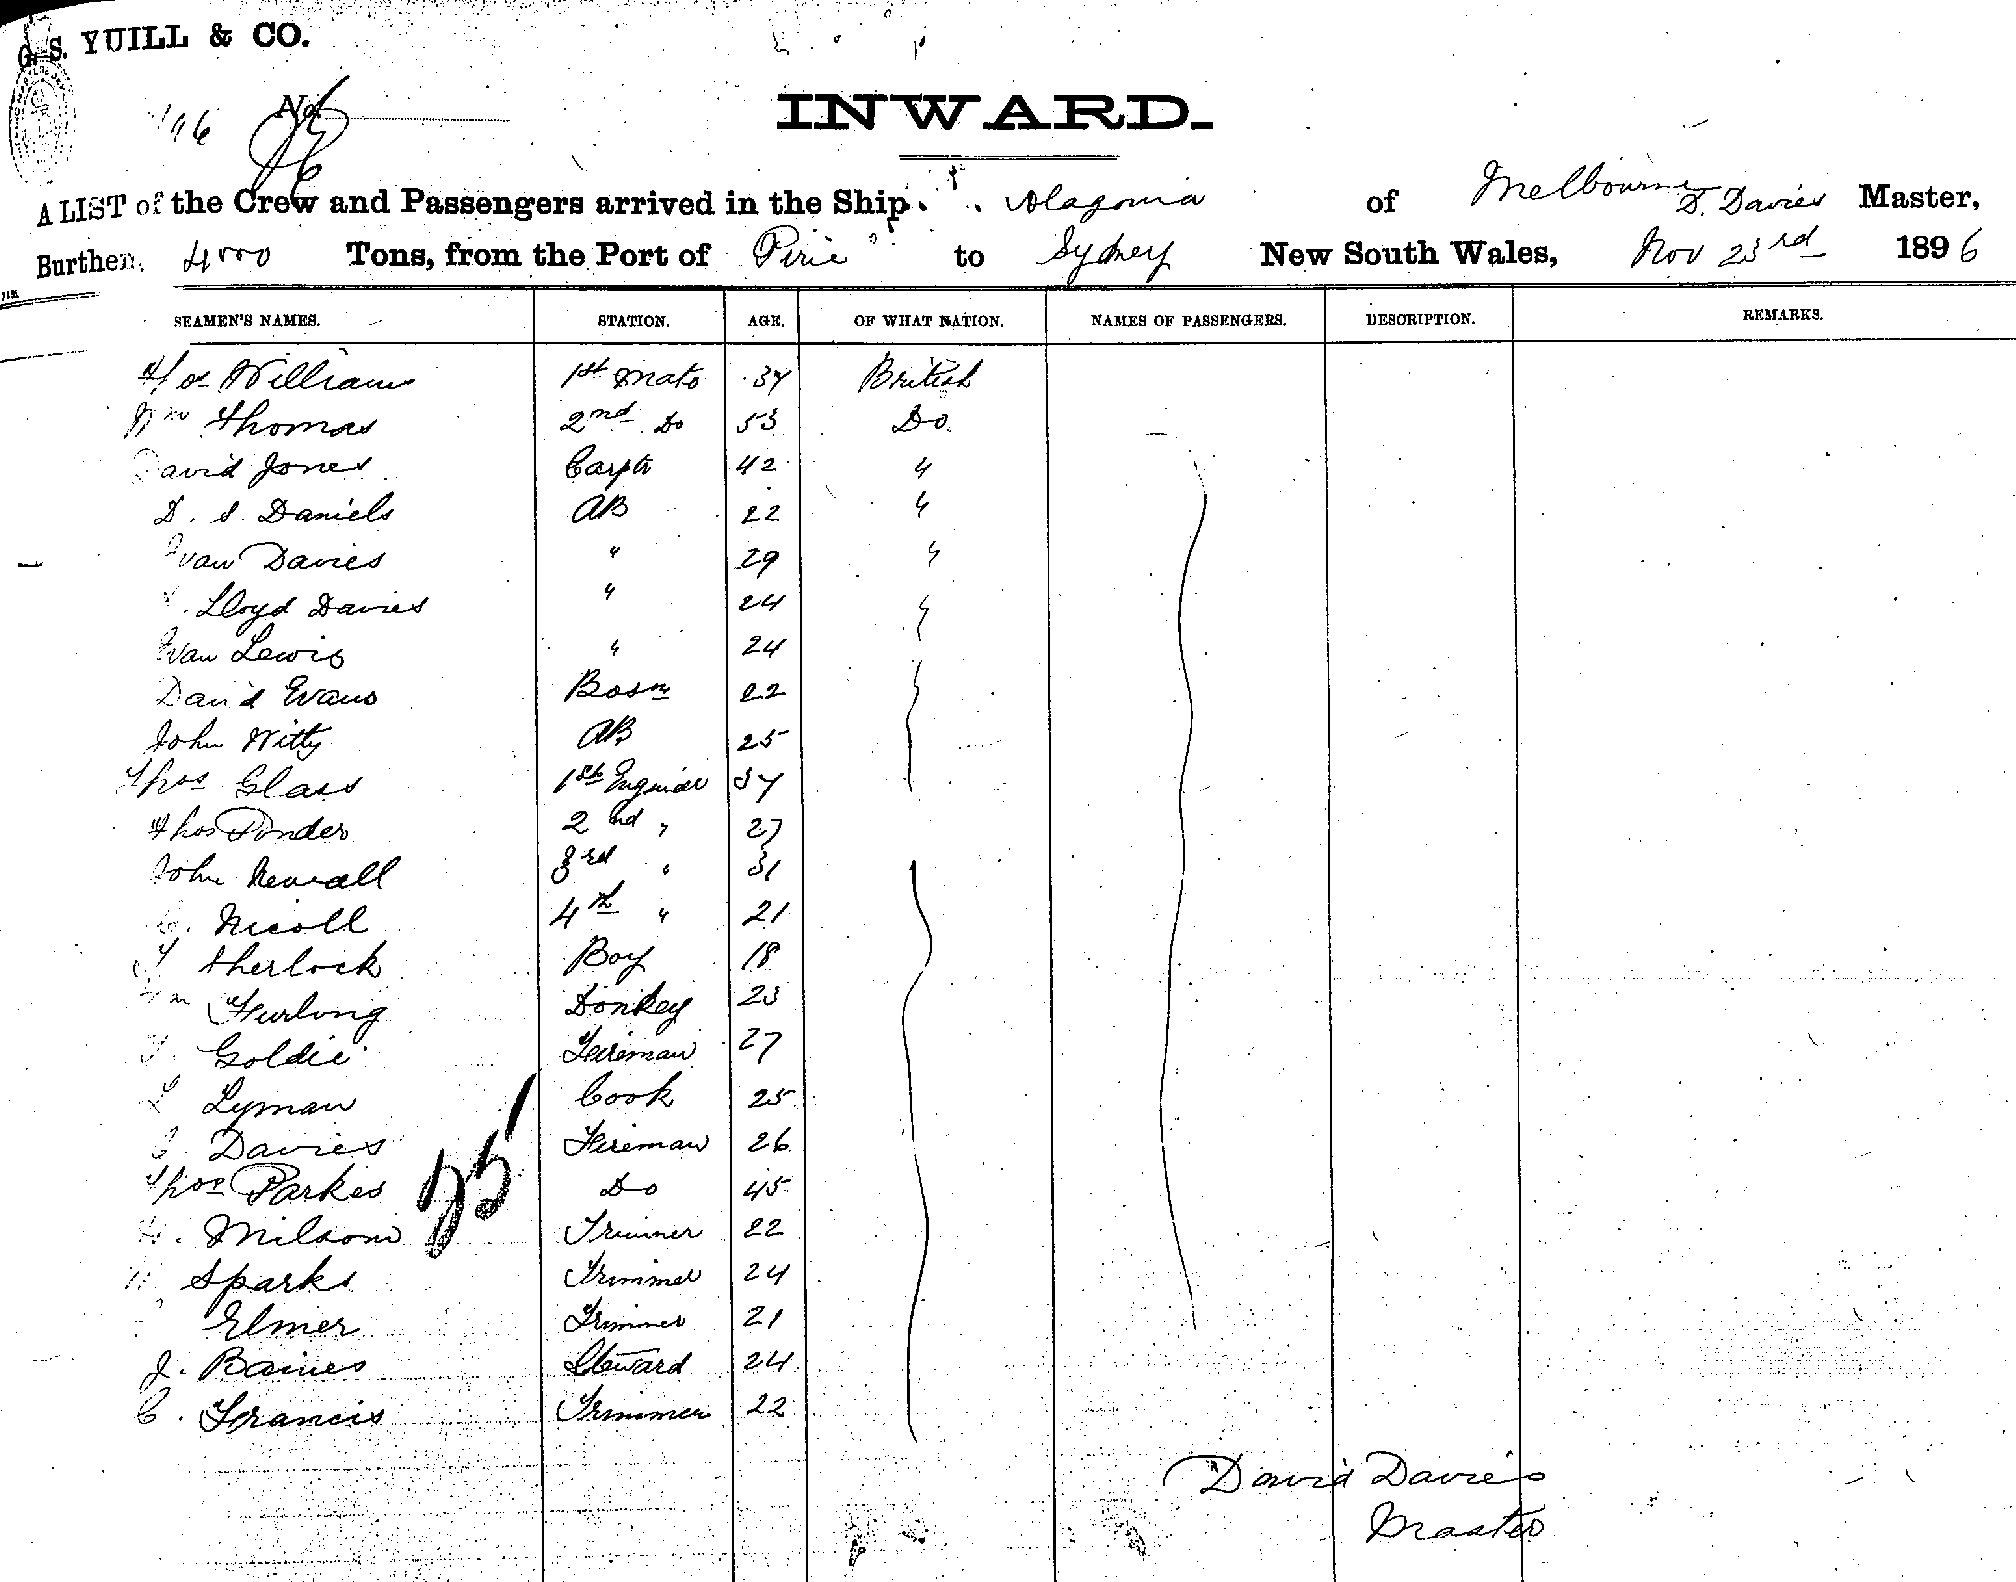 G. S. YUILL & CO.
No.
INWARD.
A LIST of the Crew and Passengers arrived in the Ship Alagonia of Melbourne D. Davies Master,
Burthen, 4000 Tons, from the Port of Pirie to Sydney New South Wales, Nov 23rd 1896
SEAMEN'S NAMES. STATION. AGE. OF WHAT NATION. NAMES OF PASSENGERS. DESCRIPTION. REMARKS.
Williams 1st Mate 37 British
Wm Thomas 2nd Do 53 Do.
David Jones Carptr 42 "
D. S. Daniels AB 22 "
Evan Davies " 29 "
Lloyd Davies " 24 "
Evan Lewis " 24
David Evans Bosn 22
John Witty AB 25
Thos Glass 1st Enginier 37
Thos Ponder 2nd " 27
John Newall 3rd " 31
C. Nicoll 4th " 21
T Sherlock Boy 18
Wm Furlong Donkey 23
T. Goldie Fireman 27
L Lyman Cook 25
C Davies Fireman 26
Thos Parkes Do 45
H. Milsom Trimmer 22
Sparks Trimmer 24
Elmer Trimmer 21
J. Baines Steward 24
C. Francis Trimmer 22
25
David Davies
Master